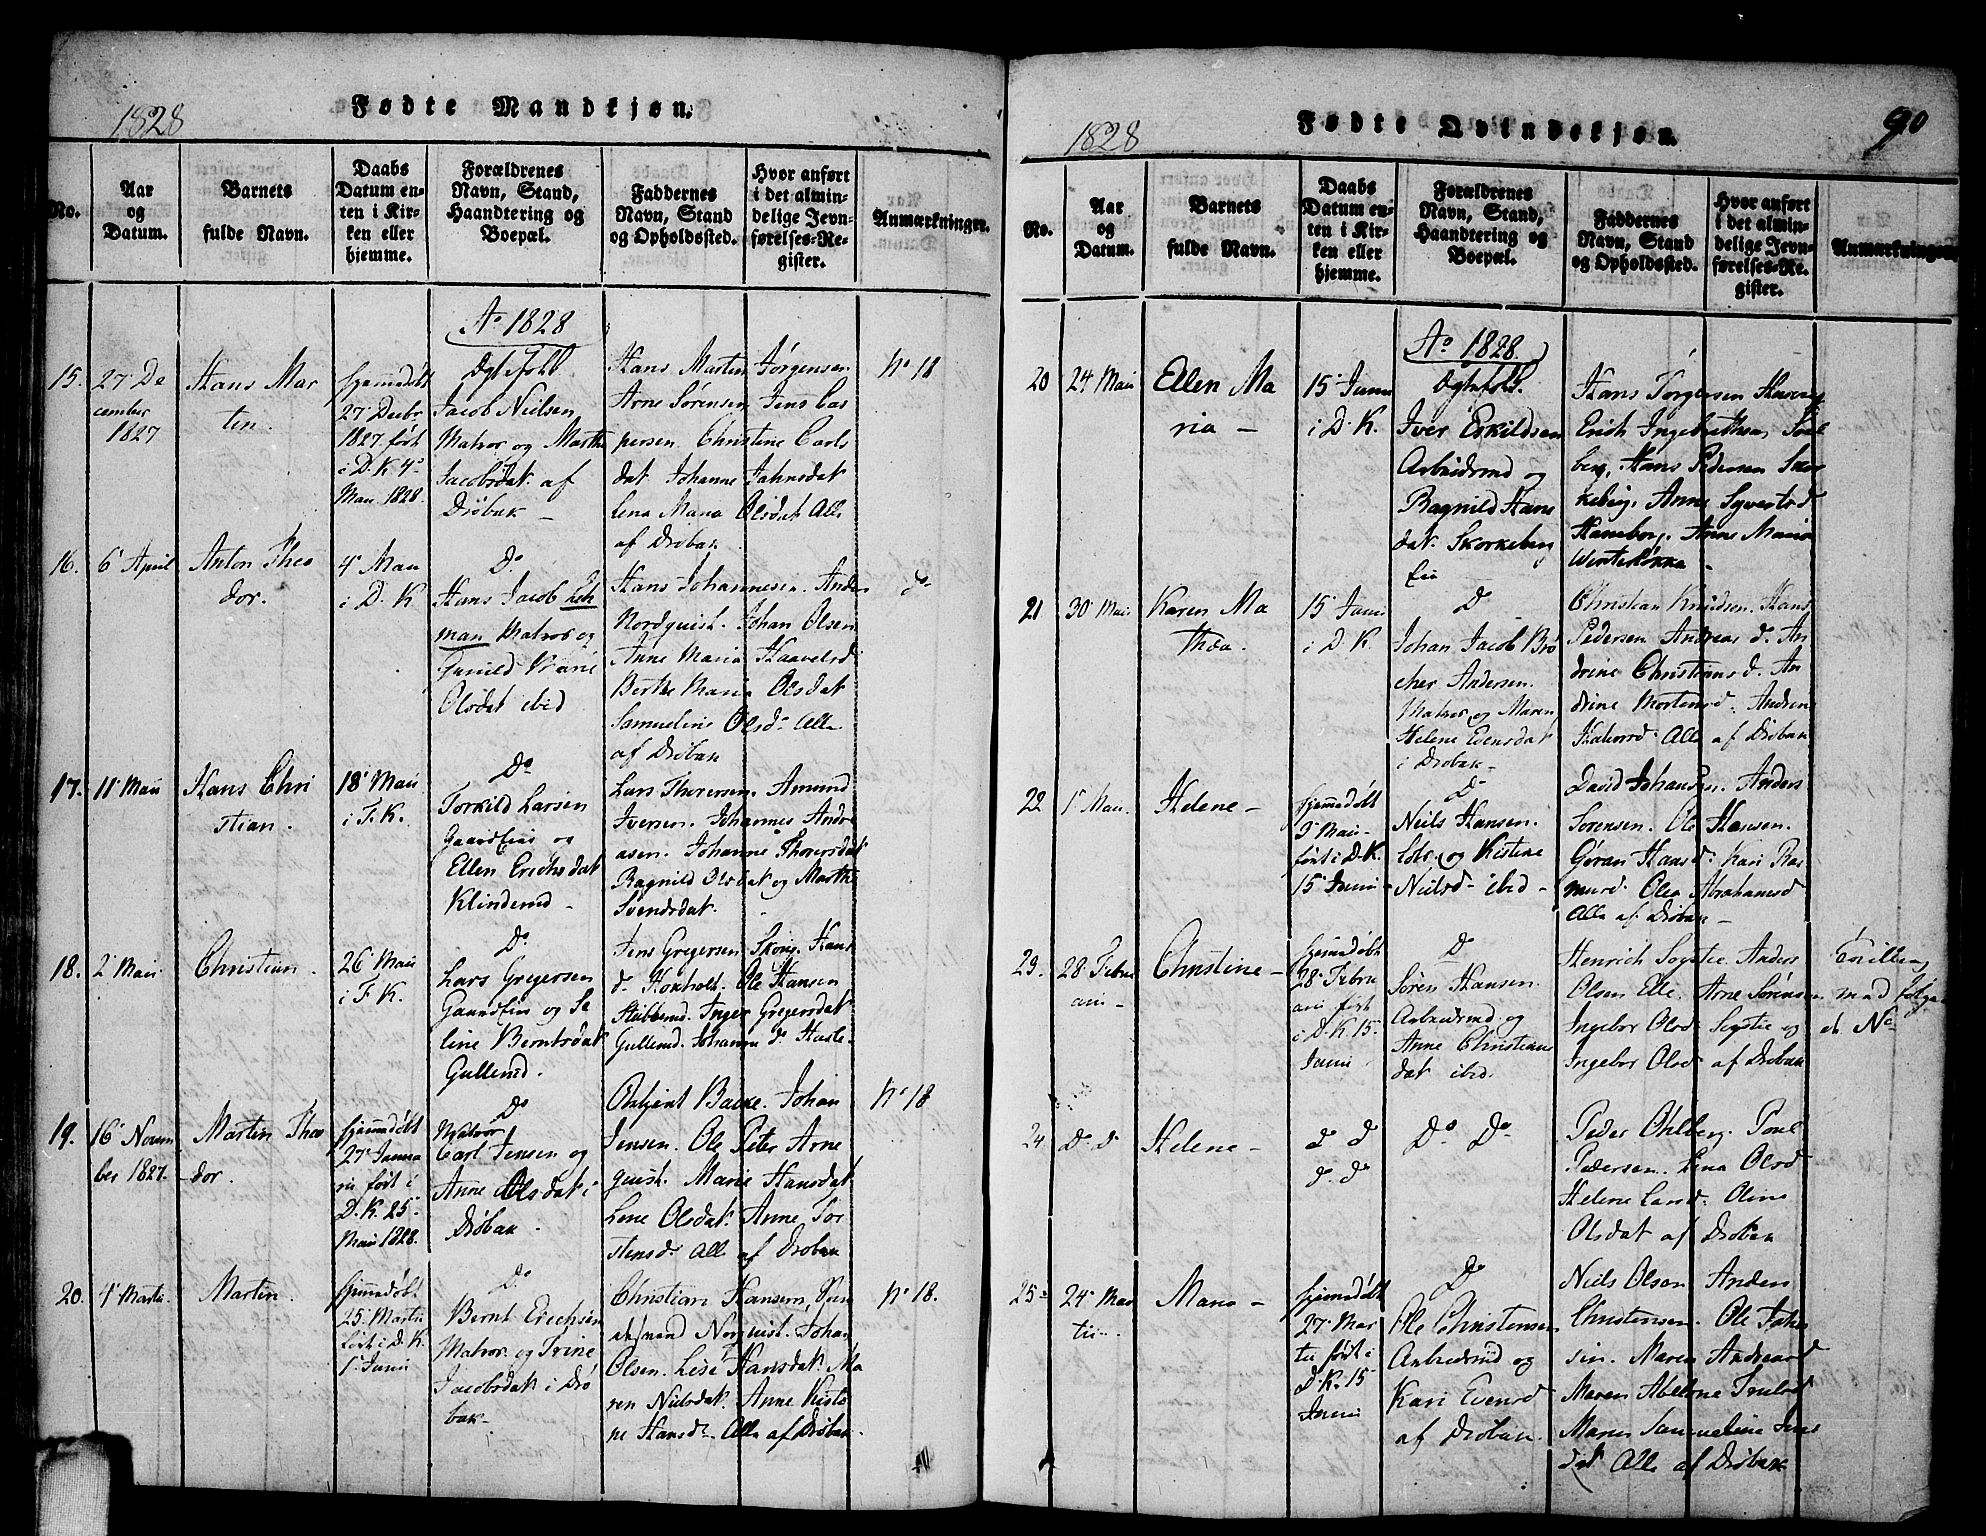 1828 Fødte Mandkjøn.
No.
Aar og Datum.
Barnets fulde Navn.
Daabs Datum enten i Kirken eller hjemme.
Forældrenes Navn, Stand, Haandtering og Boepæl.
Faddernes Navn, Stand og Opholdssted.
Hvor anført i det almindelige Jevnførelses-Register.
Anmærkninger.
Ao 1828
15.
27 De
cember
1827
Hans Mar
tin.
hjemmedøbt
27 Decbr
1827 født
i D. K 4
Mai 1828.
Ægtefolk
Jacob Nielsen
Matros og Marthe
Jacobsdat. af
Drøbak
Hans Martin Jørgensen
Arne Sørensen Jens Cas
persen Christine Carls
dat Johanne Jahnsdat
Lena Maria Olsdat Alle
af Drøbak
No 18
16.
6 April
Anton Theo
dor.
4 Mai
i D. K
Do
Hans Jacob Leh
man Matros og
Gunild Marie
Olsdat ibid
Hans Johannesen. Anders
Nordquist. Johan Olsen
Anne Maria Haavelsd
Berthe Maria Olsdat
Samueline Olsd. Alle
af Drøbak
do
17.
11 Mai
Hans Chri
stian.
18 Mai
i F. K.
Do
Torkild Larsen
Gaardeier og
Ellen Erichsdat
Klinderud
Lars Thoresen. Amund
Iversen. Johannes Andre
asen. Johanne Thoresdat
Ragnild Olsdat og Marthe
Svendsdat.
18.
2 Mai
Christian.
26 Mai
i F K.
Do
Lars Gregersen
Gaardeier og Se
line Berntsdat
Gullerud.
Jens Gregersen Skorig. Hans
d. Hoxholt. Ole Hansen
Stubberud. Inger Gregersdat
Gullerud. Johanne d. Hasle
19.
16 Novem
ber 1827.
Martin Theo
dor.
hjemmedøbt
27 Janua
rii født i
D. K. 25
Mai 1828.
Do
Matros
Carl Jensen og
Anne Olsdat i
Drøbak.
Backe. Johan
Jensen. Ole Peter Arne
quist. Marie Hansdat
Lene Olsdat. Anne Tor
stensd. Alle af Drøbak
No 18
20.
4 Martii
Martin.
hjemmedøbt
25 Martii
født i D. K.
1 Junii
Do
Bernt Erichsen
Matros og Trine
Jacobsdat i Drø
bak
Christian Hansen,
Norquist. Johan
Olsen. Lise Hansdat. Ma
ren Nielsdat. Anne Kisti
ne Hansd. Alle af Drøbak.
No 18.
1828 Fødte Qvindekjøn. 90
No.
Aar og Datum.
Barnets fulde Navn.
Daabs Datum enten i Kirken eller hjemme.
Forældrenes Navn, Stand, Haandtering og Boepæl.
Faddernes Navn, Stand og Opholdssted.
Hvor anført i det almindelige Jevnførelses-Register.
Anmærkninger
Ao 1828.
20
24 Mai
Ellen Ma
ria
15 Junii
i D. K.
Ægtefolk.
Iver Eskildsen
Arbeidsmd og
Ragnild Hans
dat. Skorkeberg
Eie
Hans Torgersen
Erich Ingebrethsen Sol
berg, Hans Pedersen Skor
keberg, Anne Syverts d
Haneborg. Anne Maria
Winterløkke
21
30 Mai
Karen Ma
thea.
15 Junii
i D. K.
Do
Johan Jacob Brø
cher Andersen.
Matros og Maren
Helene Evensdat
i Drøbak
Christian Knudsen. Hans
Pedersen Andreas d. An
drine Christians d. An
drine Mortensd. Andrin
Alle af Drøbak
22
1 Mai.
Helene
hjemmedøbt
3 Mai
født i D. K.
15 Junii
Do
Neils Hansen.
Lods og Kistine
Nielsd. ibid
David Johansen. Anders
Sørensen. Ole Hansen.
Gøran Hansd. Kari Ras
musd. Olea Abrahamsd
Alle af Drøbak
23.
28 Febru
arii
Christine
hjemmedøbt
28 Febru
arii født
i D. K. 15
Junii
Do
Søren Hansen.
Arbeidsmd og
Anne Christians
dat ibid.
Henrich Sogstie. Anders
Olsen Elle. Arne Sørensen
Ingebor Olsd Sogstie og
Ingebor Olsd af Drøbak
Tvilling
med følgen
de No
24
Do. Do
Helene
do do
do do
Do Do
Peder Ohlberg. Poul
Pedersen. Lina Olsd
Helene Larsd. Oline
Olsdat af Drøbak
25
24 Mar
tii
Maria
hjemmedøbt
27 Mar
tii født i
D. K. 15
Junii
Do
Ole Christensen
Arbeidsmd og
Kari Evensd
af Drøbak.
Niels Olson Anders
Christensen. Ole Johan
sen. Maren Andreasd
Maren Abelone Truelsd
Maren Samueline Jens
dat Alle af Drøbak